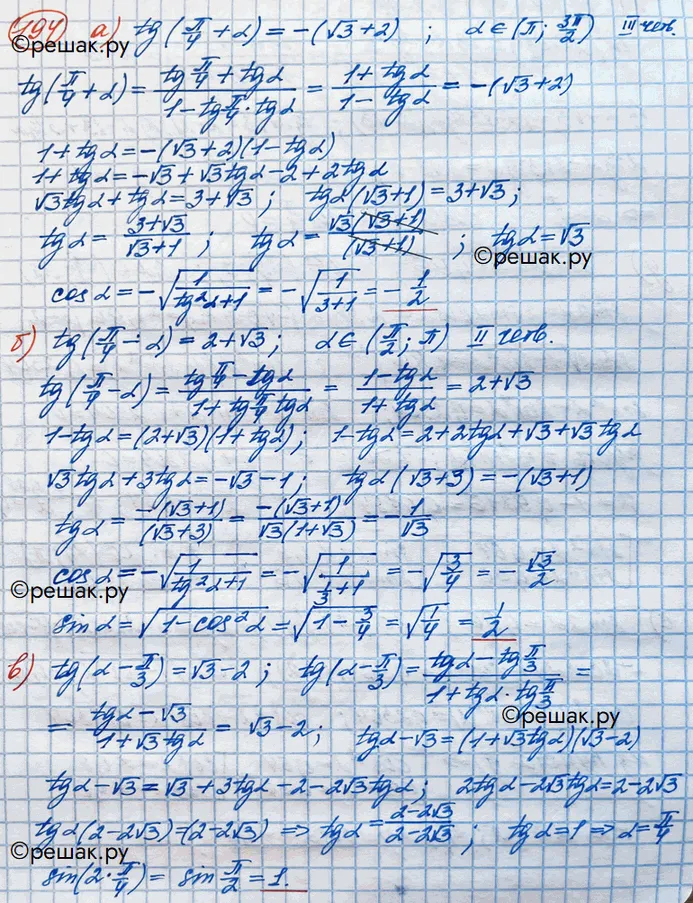 194 а) tg(π/4 + α) = -(√3+2) ; α ∈ (π; 3π/2) III чет.
©решак.ру
tg(π/4 + α) = (tg π/4 + tgα)/(1 - tg π/4 · tgα) = (1 + tgα)/(1 - tgα) = -(√3+2)
1 + tgα = -(√3+2)(1 - tgα)
1 + tgα = -√3 + √3tgα - 2 + 2tgα
√3tgα + tgα = 3+√3 ; tgα(√3+1) = 3+√3 ;
tgα = (3+√3)/(√3+1) ; tgα = √3(√3+1)/(√3+1) ; tgα = √3
©решак.ру
cosα = -√(1/(tg²α+1)) = -√(1/(3+1)) = -1/2
б) tg(π/4 - α) = 2+√3 ; α ∈ (π/2; π) II четв.
tg(π/4 - α) = (tg π/4 - tgα)/(1 + tg π/4 tgα) = (1 - tgα)/(1 + tgα) = 2+√3
1 - tgα = (2+√3)(1 + tgα) ; 1 - tgα = 2 + 2tgα + √3 + √3tgα
√3tgα + 3tgα = -√3 - 1 ; tgα(√3+3) = -(√3+1)
tgα = -(√3+1)/(√3+3) = -(√3+1)/(√3(1+√3)) = -1/√3
cosα = -√(1/(tg²α+1)) = -√(1/(1/3+1)) = -√(3/4) = -√3/2
©решак.ру
sinα = √(1 - cos²α) = √(1 - 3/4) = √(1/4) = 1/2
в) tg(α - π/3) = √3 - 2 ; tg(α - π/3) = (tgα - tg π/3)/(1 + tgα · tg π/3) =
©решак.ру
= (tgα - √3)/(1 + √3tgα) = √3 - 2 ; tgα - √3 = (1 + √3tgα)(√3 - 2)
tgα - √3 = √3 + 3tgα - 2 - 2√3tgα ; 2tgα - 2√3tgα = 2 - 2√3
tgα(2 - 2√3) = (2 - 2√3) ⇒ tgα = (2 - 2√3)/(2 - 2√3) ; tgα = 1 ⇒ α = π/4
©решак.ру
sin(2 · π/4) = sin π/2 = 1.